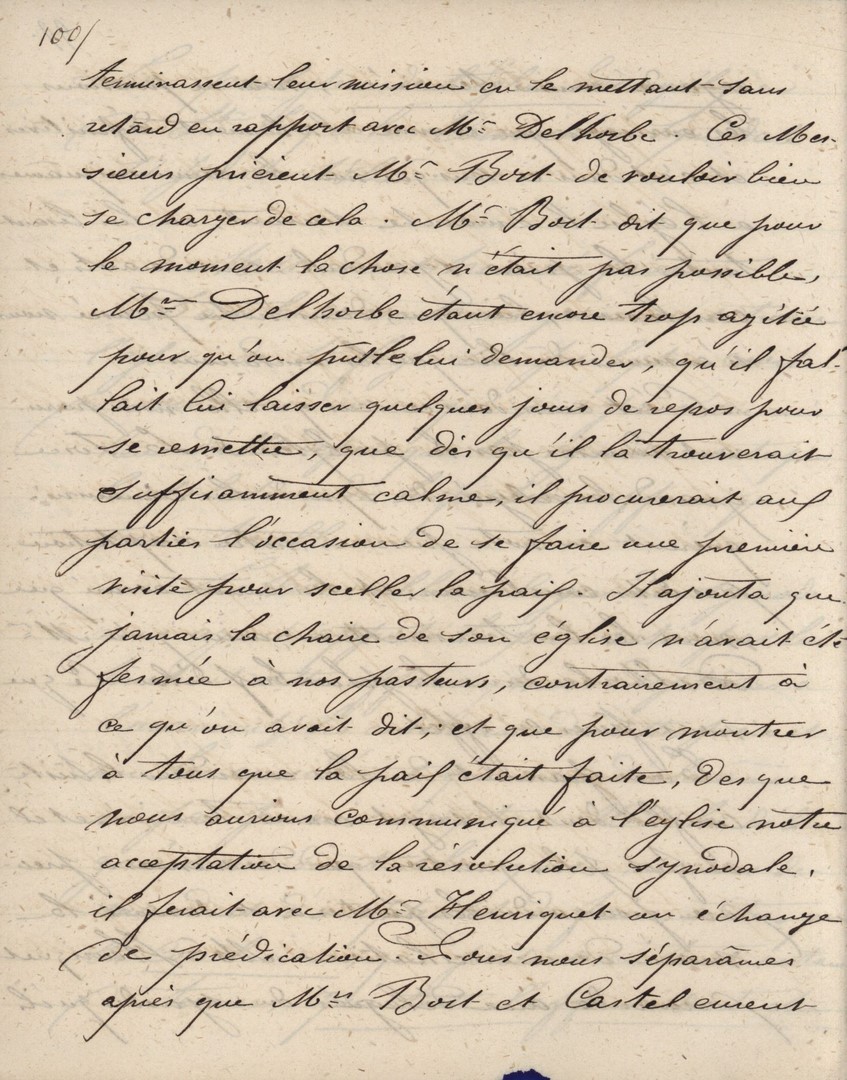 100/
terminassent leur mission en le mettant sans
retard en rapport avec Mr Delhorbe. Ces Mes-
sieurs prièrent Mr Bost de vouloir bien
se charger de cela. Mr Bost dit que pour
le moment la chose n'était pas possible,
Mme Delhorbe étant encore trop agitée
pour qu'on pût le lui demander, qu'il fal-
lait lui laisser quelques jours de repos pour
se remettre, que dès qu'il la trouverait
suffisamment calme, il procurerait aux
parties l'occasion de se faire une première
visite pour sceller la paix. Il ajouta que
jamais la chaire de son église n'avait été
fermée à nos pasteurs, contrairement à
ce qu'on avait dit; et que pour montrer
à tous que la paix était faite, dès que
nous aurions communiqué à l'église notre
acceptation de la résolution synodale,
il ferait avec Mr Henriquet un échange
de prédication. Nous nous séparâmes
après que Mrs Bost et Castel eurent